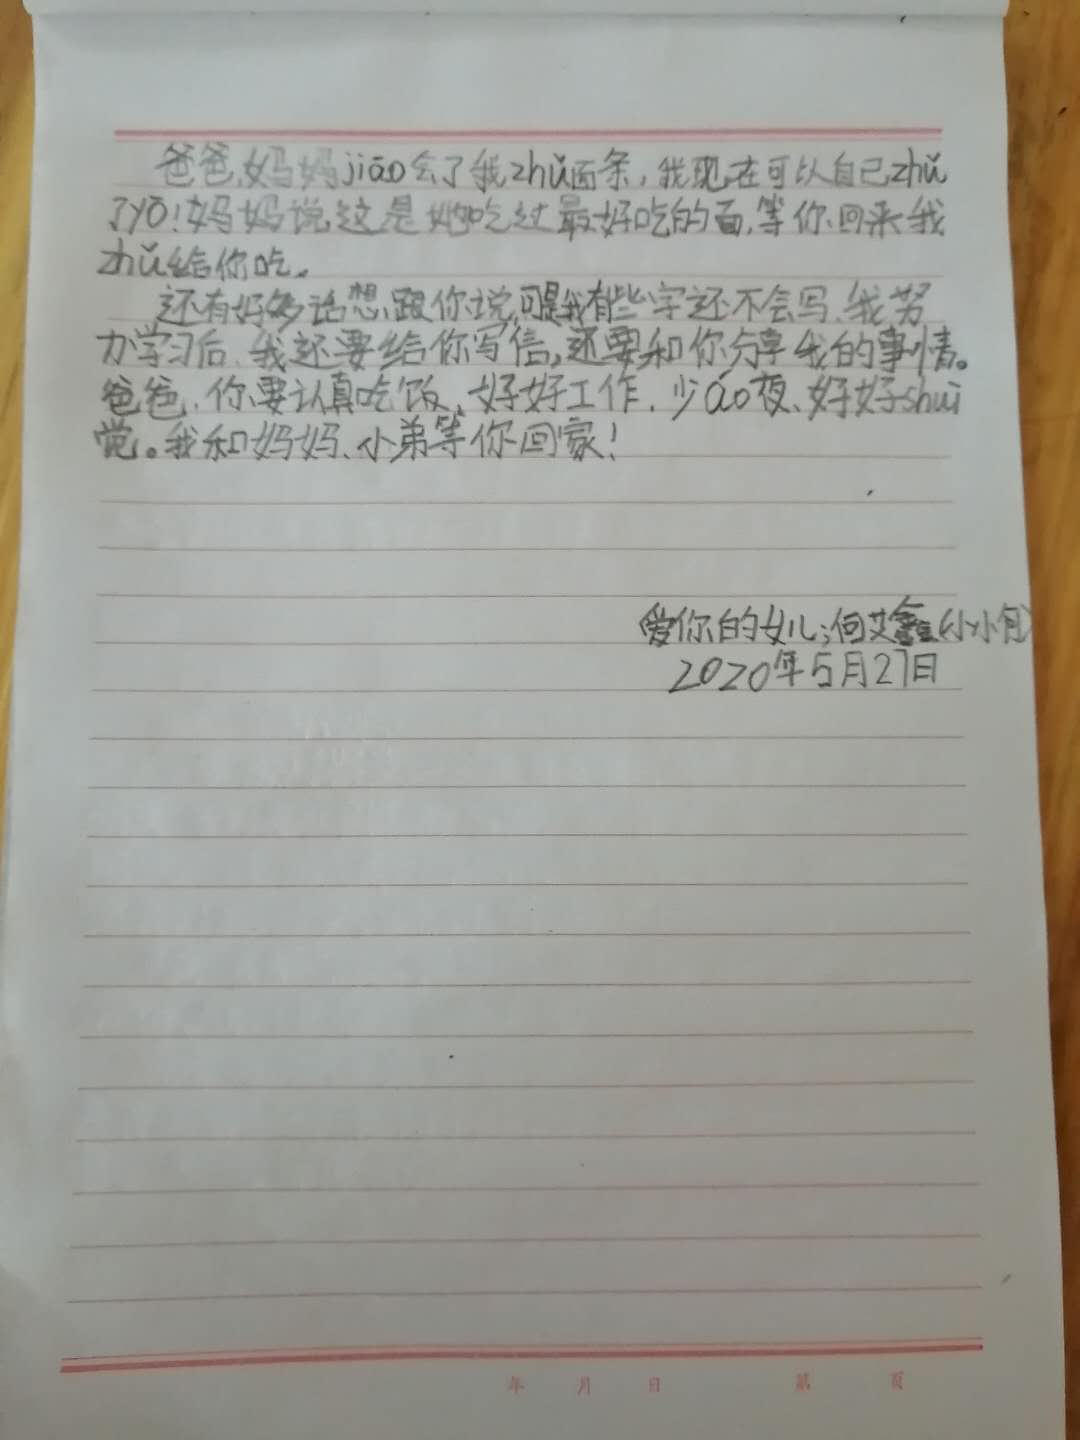 爸爸，妈妈jiāo会了我zhǔ面条，我现在可以自己zhǔ
了yō！妈妈说这是她吃过最好吃的面，等你回来我
zhǔ给你吃。
还有好多话想跟你说，可是我有些字还不会写，我努
力学习后，我还要给你写信，还要和你分享我的事情。
爸爸，你要认真吃饭、好好工作，少áo夜、好好shuì
觉。我和妈妈、小弟等你回家！
爱你的女儿：何艾鑫（小小包）
2020年5月27日
年 月 日 第 页